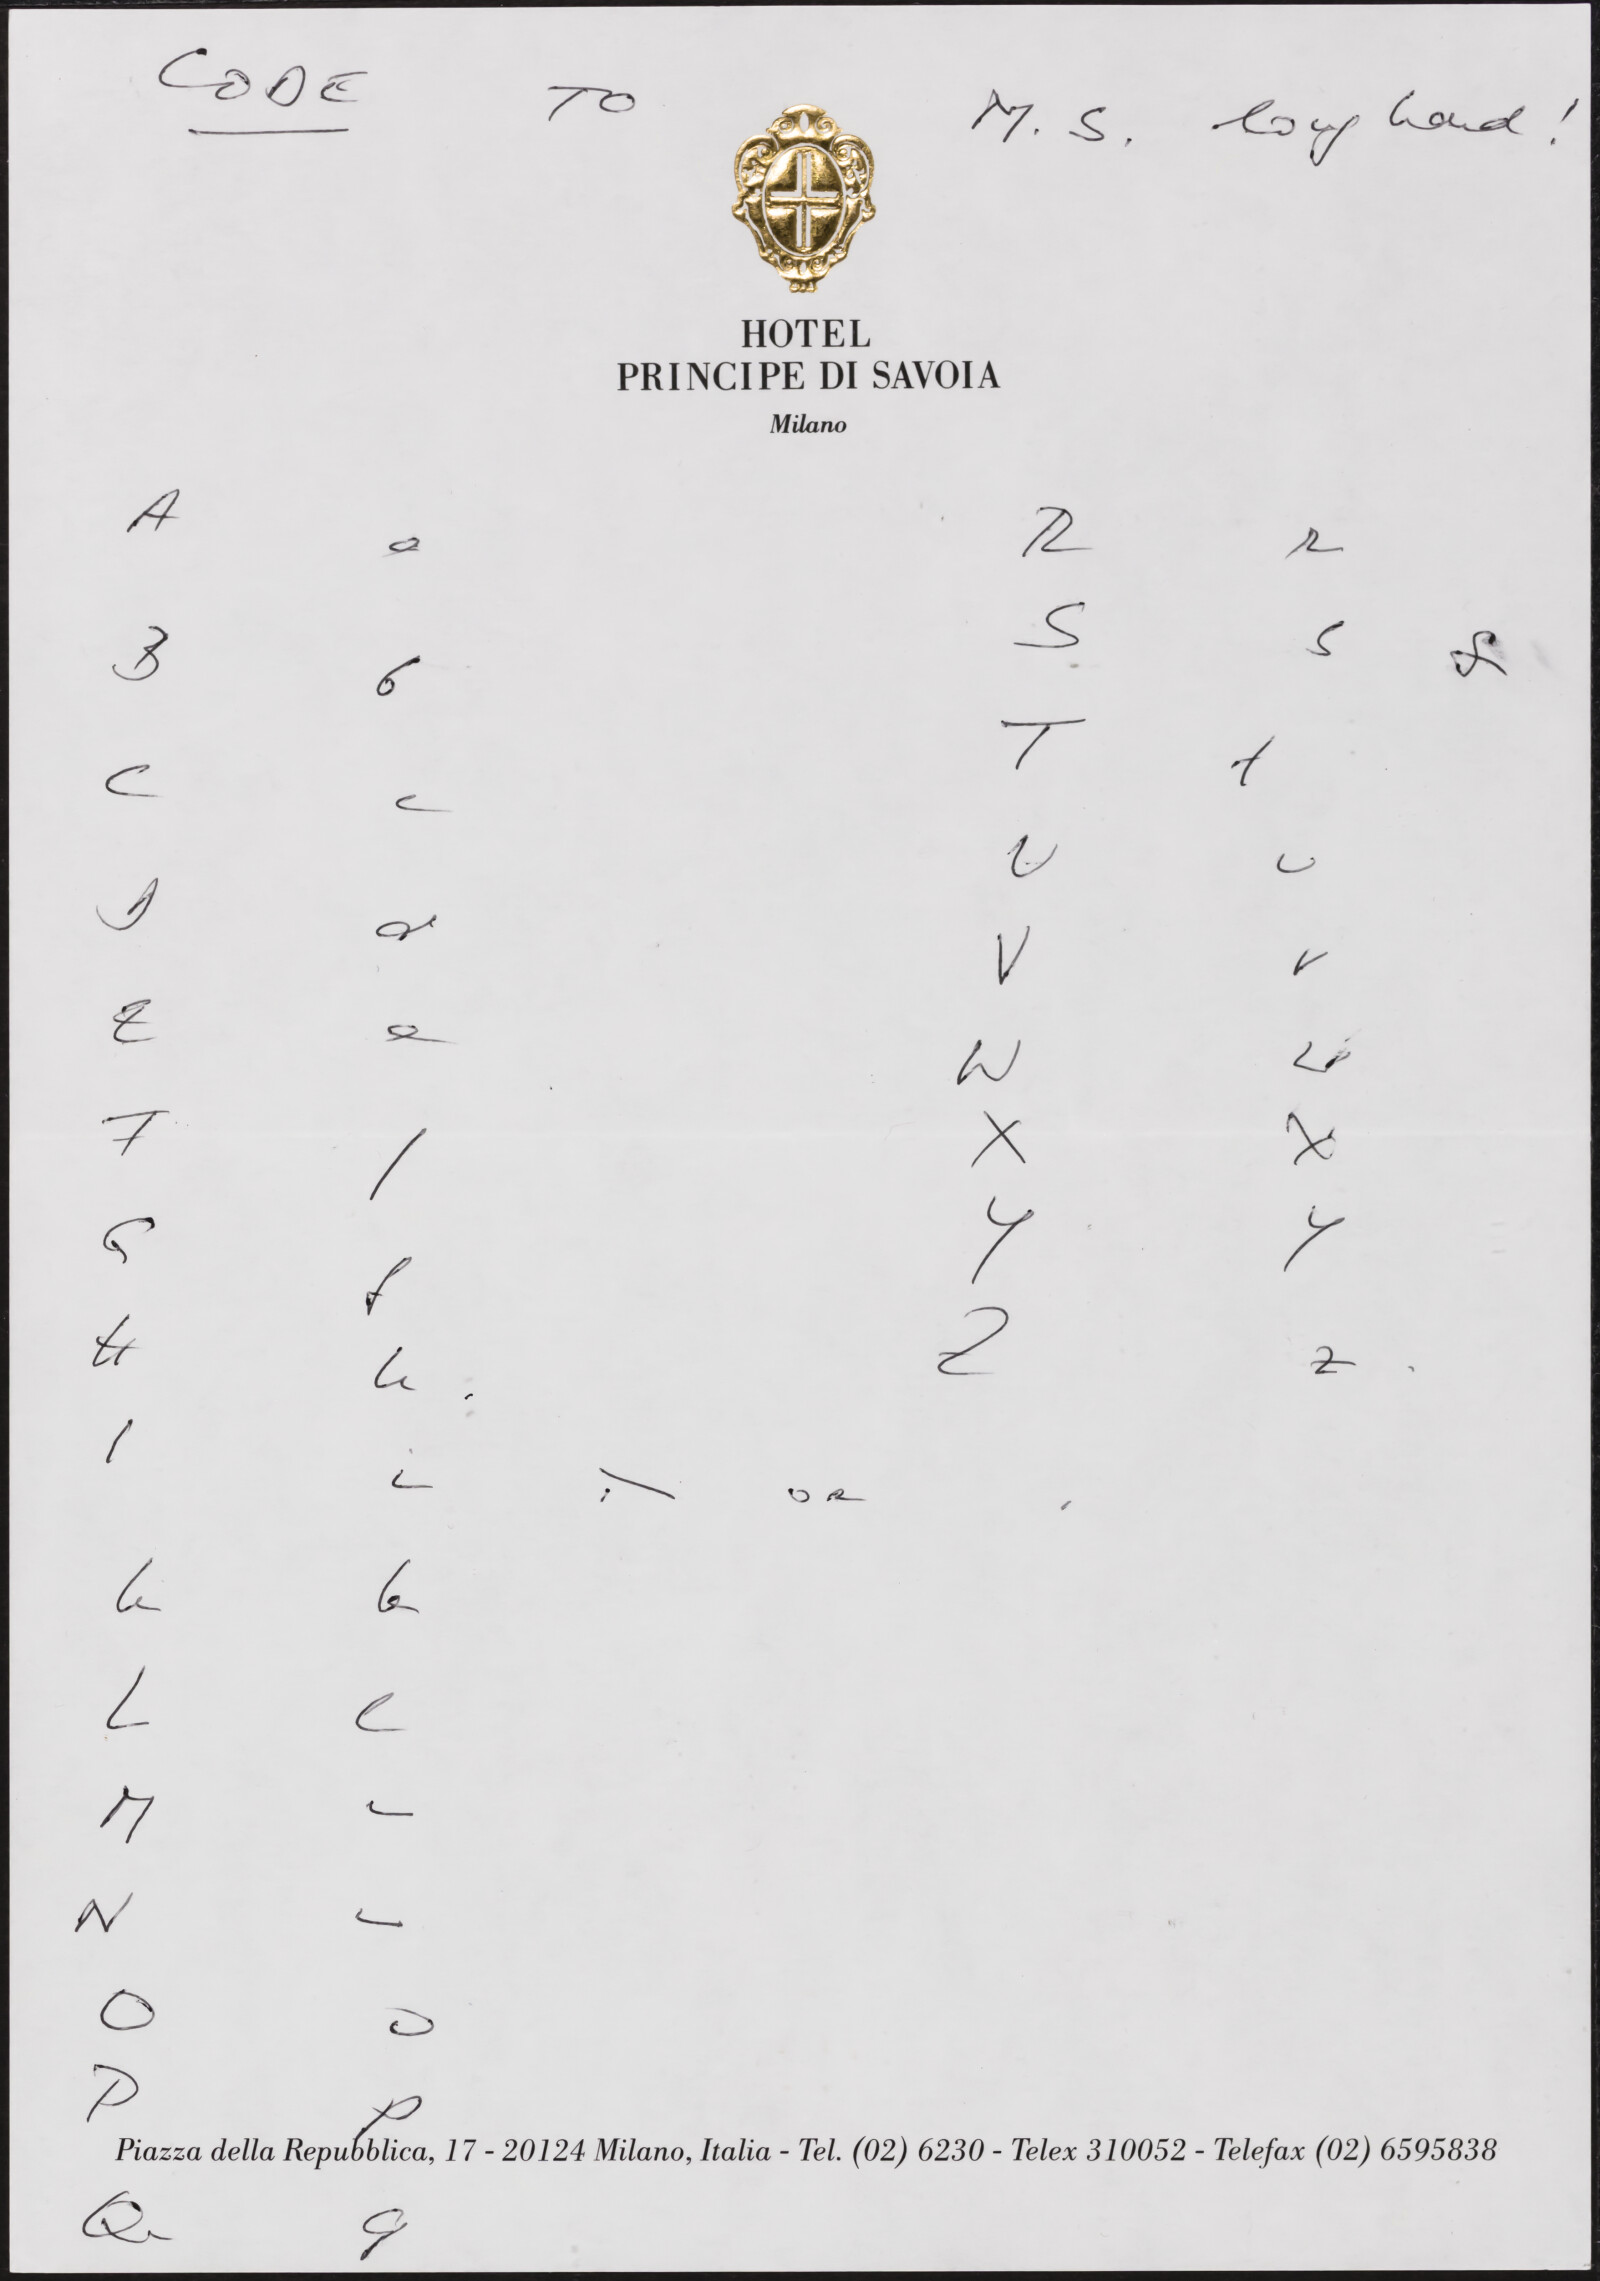 CODE TO M.S. longhand!
HOTEL
PRINCIPE DI SAVOIA
Milano
A a
B b
C c
D d
E e
F f
G g
H h.
I i or
K k
L l
M m
N n
O o
P p
Piazza della Repubblica, 17 - 20124 Milano, Italia - Tel. (02) 6230 - Telex 310052 - Telefax (02) 6595838
Q q
R r
S s
T t
U u
V v
W w
X x
Y y
Z z.